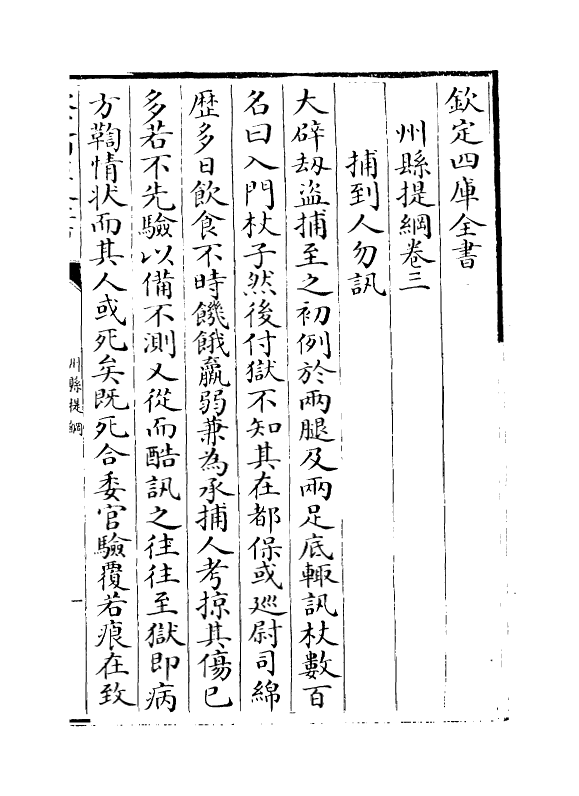 欽定四庫全書
州縣提綱卷三
捕到人勿訊
大辟劫盜捕至之初例於兩腿及兩足底輙訊杖數百
名曰入門杖子然後付獄不知其在都保或廵尉司綿
歴多日飲食不時饑餓羸弱兼為承捕人考掠其傷已
多若不先驗以備不測又從而酷訊之往往至獄即病
方鞫情状而其人或死矣既死合委官驗覆若痕在致
州縣提綱
一